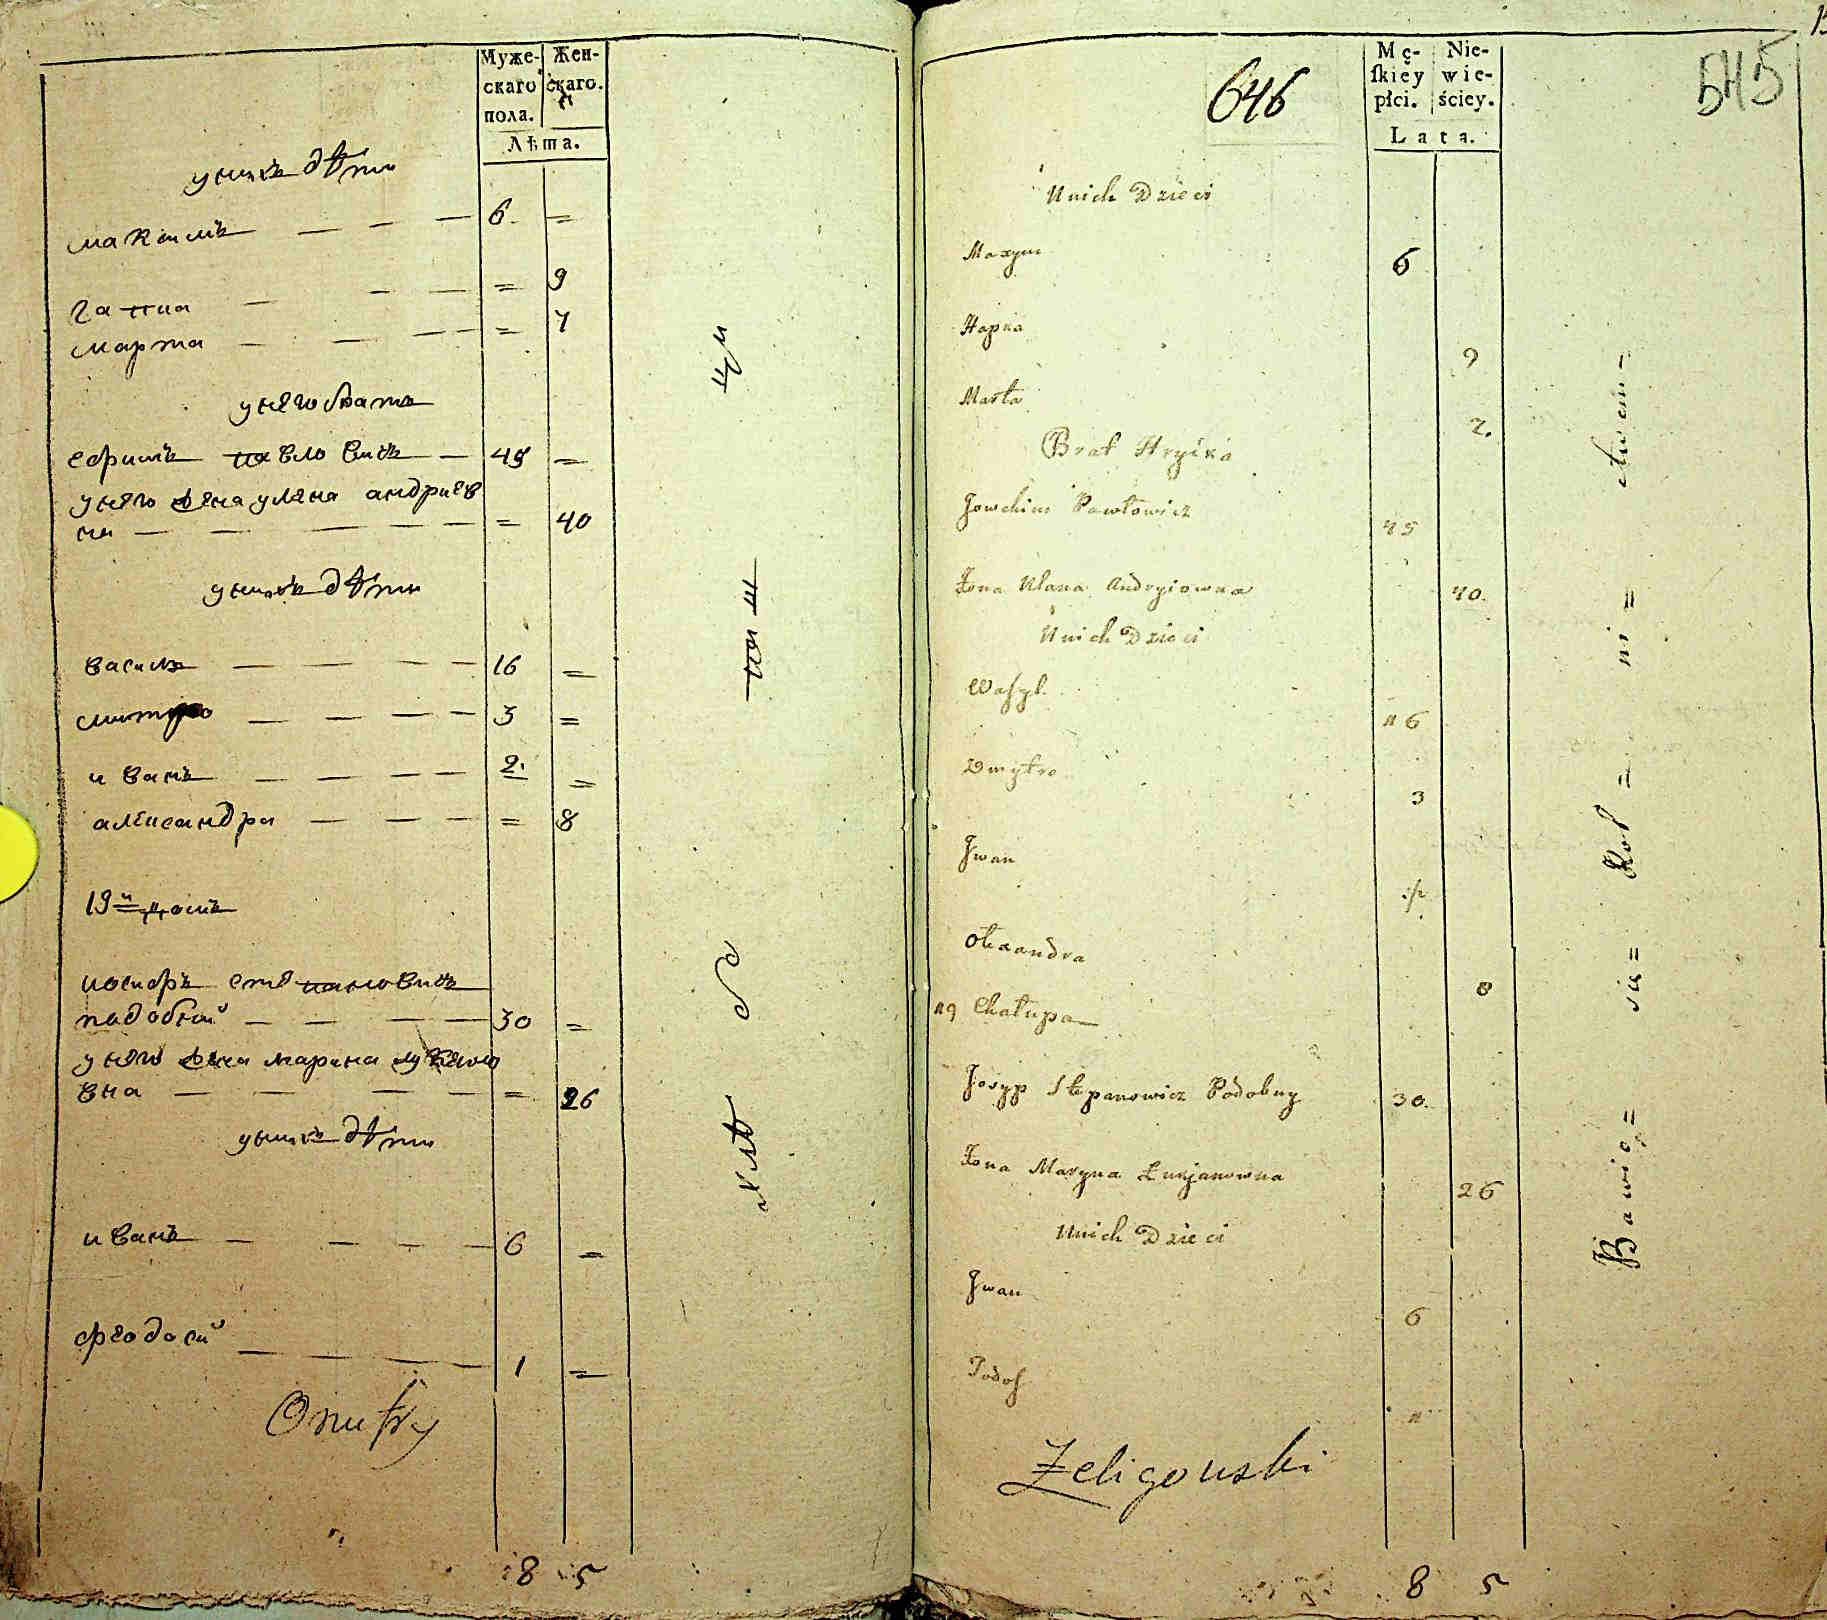 Муже-
скаго
пола.
Жен-
скаго.
Лѣта.
у нихъ дѣти
максимъ 6 =
ганна = 9
марта = 7
у него братъ
ефимъ павловичъ 45 =
у него жена уляна андриев
на = 40
у нихъ дѣти
василь 16 =
дмитро 3 =
иванъ 2. =
александра = 8
19й домъ
иосифъ степановичъ
падобний 30 =
у него жена марина лукяно
вна = 26
у нихъ дѣти
иванъ 6 =
феодосий 1 =
Onufry
8 5
646
545
Mę-
ſkiey
płci.
Nie-
wie-
ściey.
Lata.
Unich Dzieci
Maxym 6
Hapka 9
Marta 7.
Brat Hryćka
Jowchim Pawłowicz 45
Żona Ulana Andryiowna 40.
Unich Dzieci
Waſyl 16
Dmytro 3
Jwan
Olexandra 8
19 Chałupa
Josyp Stepanowicz Podobny 30.
Żona Maryna Łukjanowna 26
Unich Dzieci
Jwan 6
Todoſ
Żeligowski
8 5
Bawię= się=